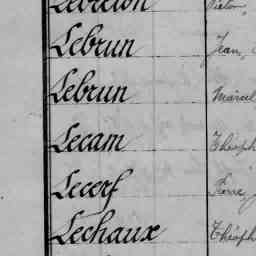 Lebreton Victor,
Lebrun Jean,
Lebrun Marcel
Lecam Théoph
Lecerf Pierre,
Lechaux Théoph